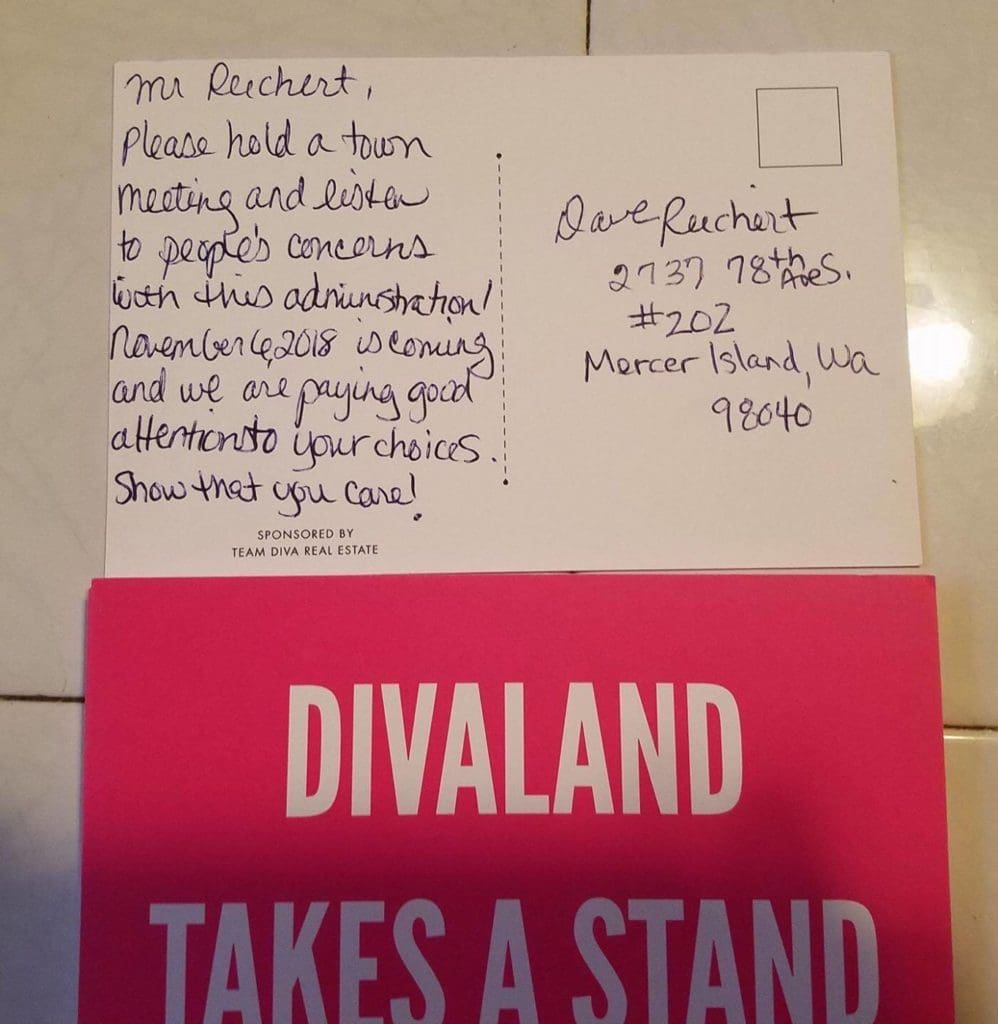 Mr Reichert,
Please hold a town
meeting and listen
to people's concerns
with this administration!
November 6, 2018 is coming
and we are paying good
attention to your choices.
Show that you care!
SPONSORED BY
TEAM DIVA REAL ESTATE
Dave Reichert
2737 78th Ave S.
#202
Mercer Island, Wa
98040
DIVALAND
TAKES A STAND